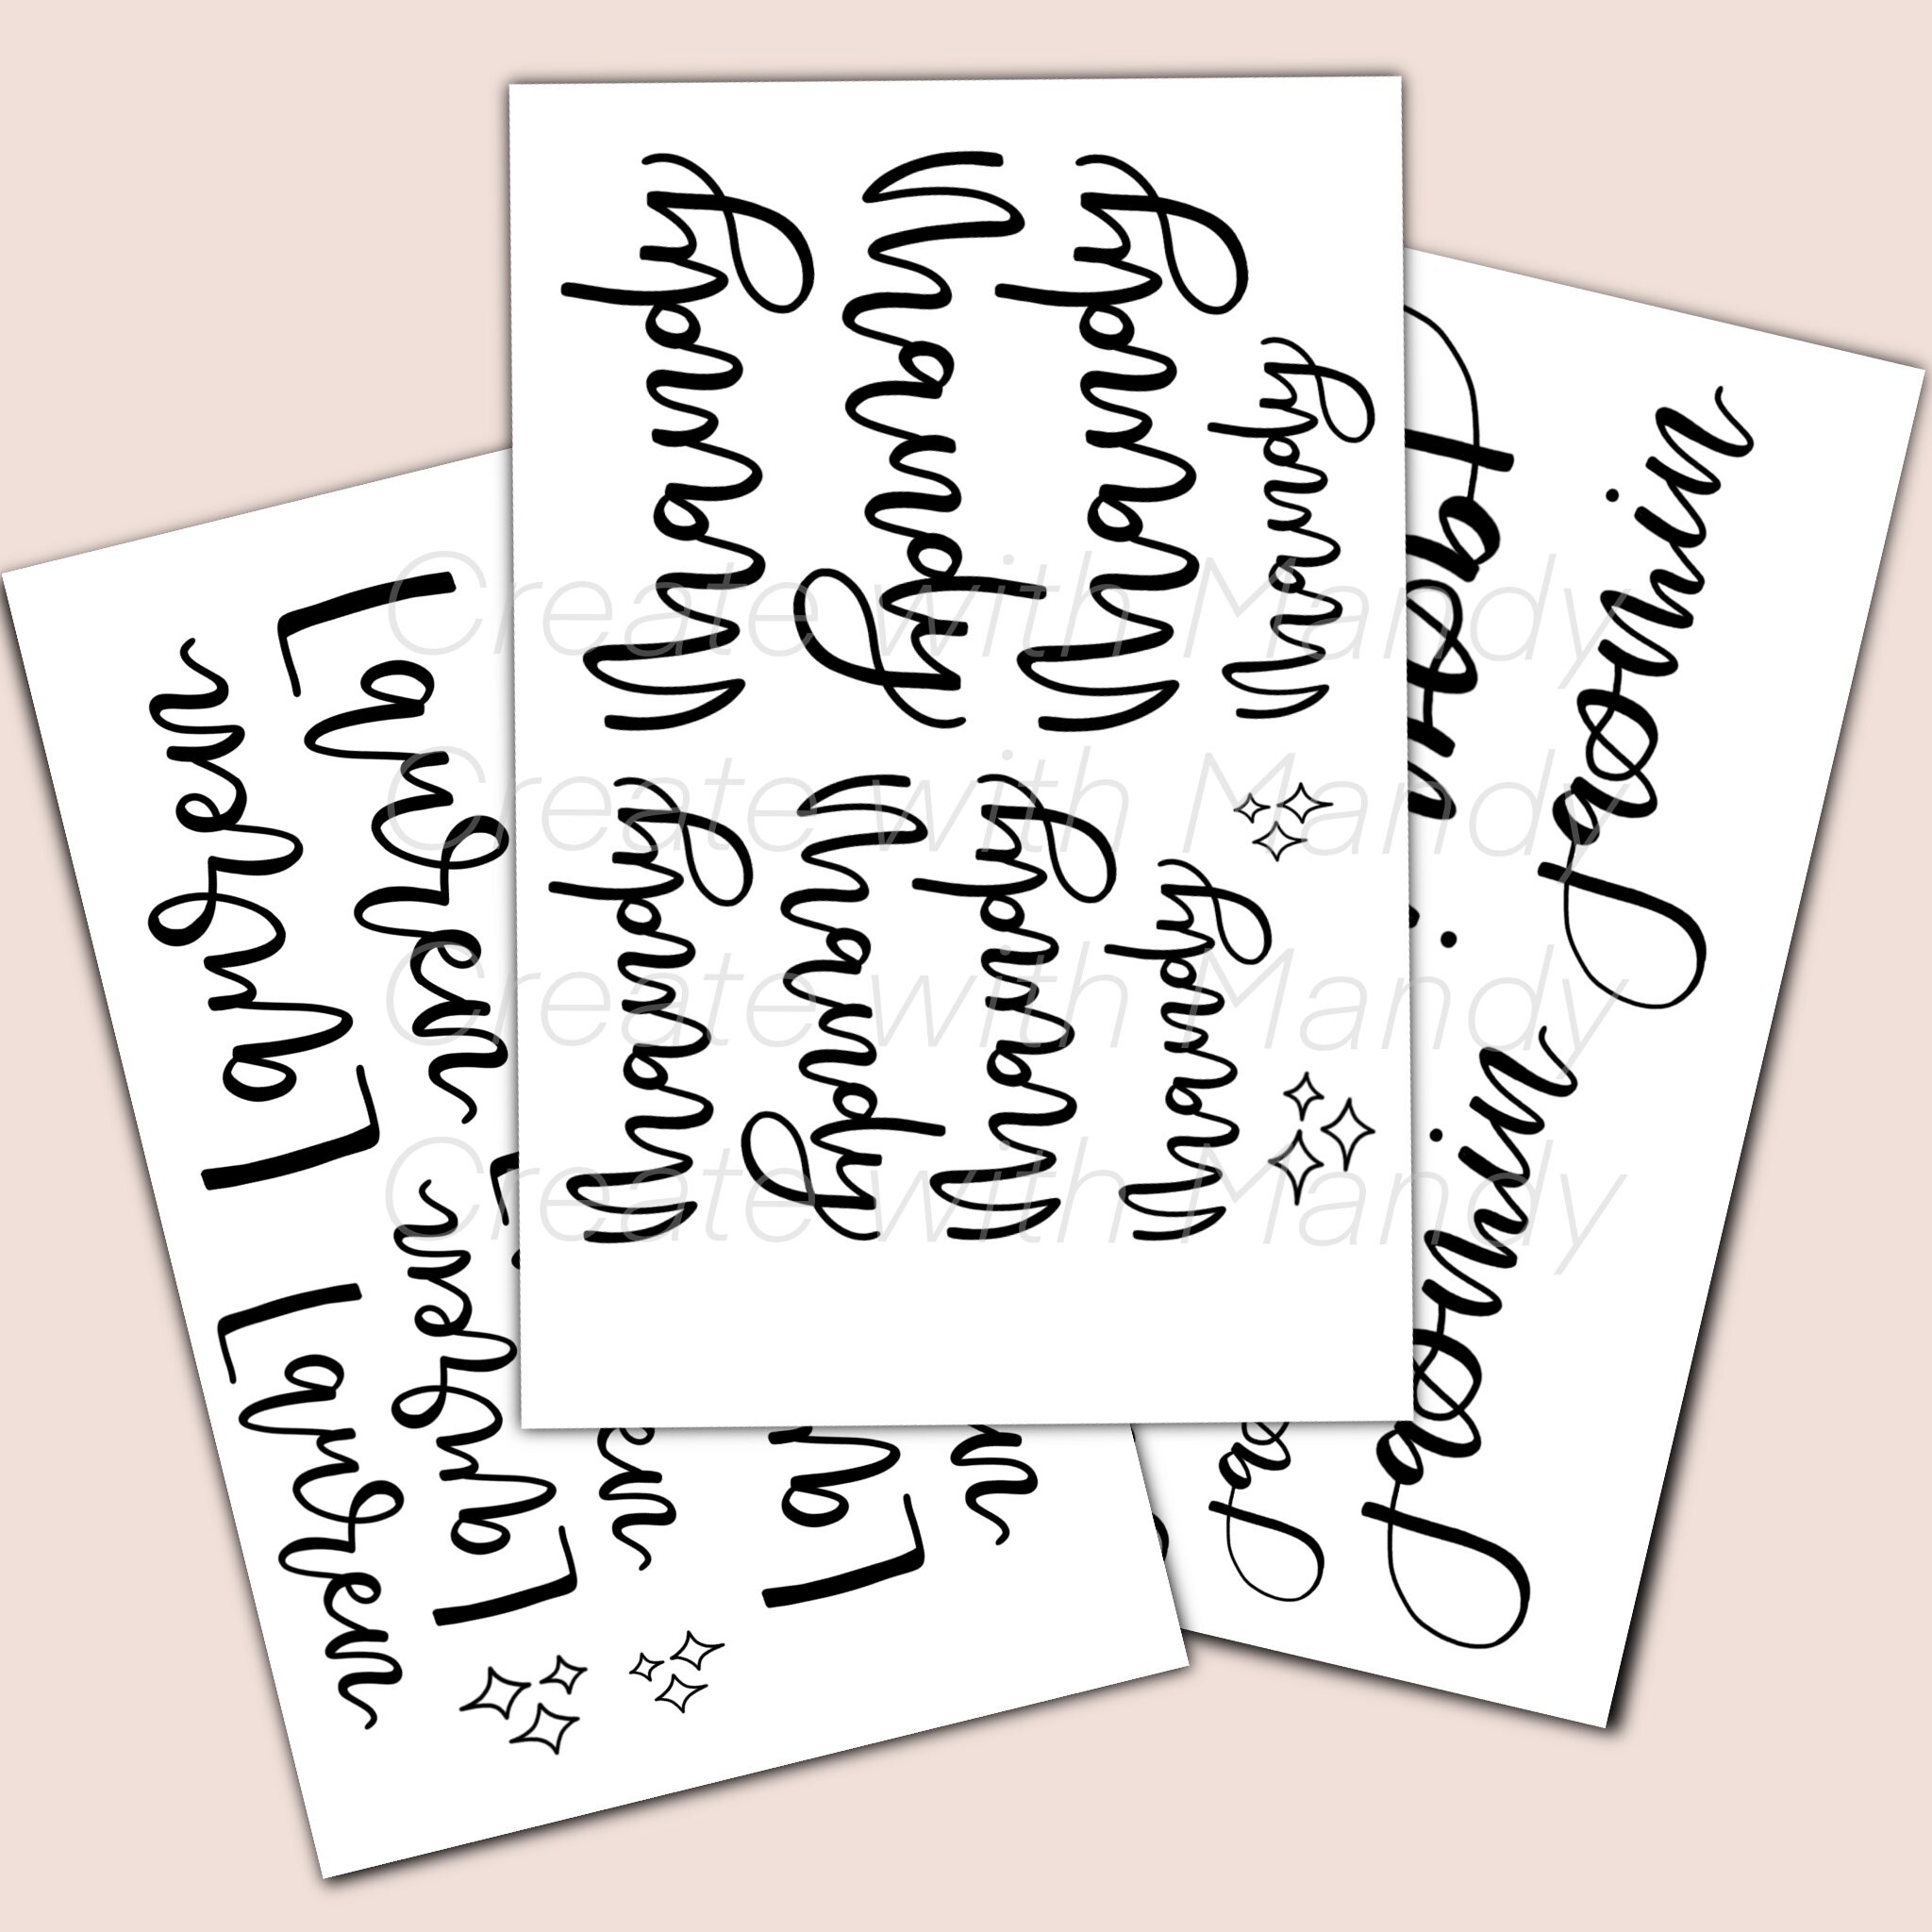 Lauren
Lauren
Lauren
Lauren
Mandy
Mandy
Mandy
Mandy
Mandy
Mandy
Mandy
Mandy
Jasmin
Jasmin
Create with Mandy
Create with Mandy
Create with Mandy
Create with Mandy